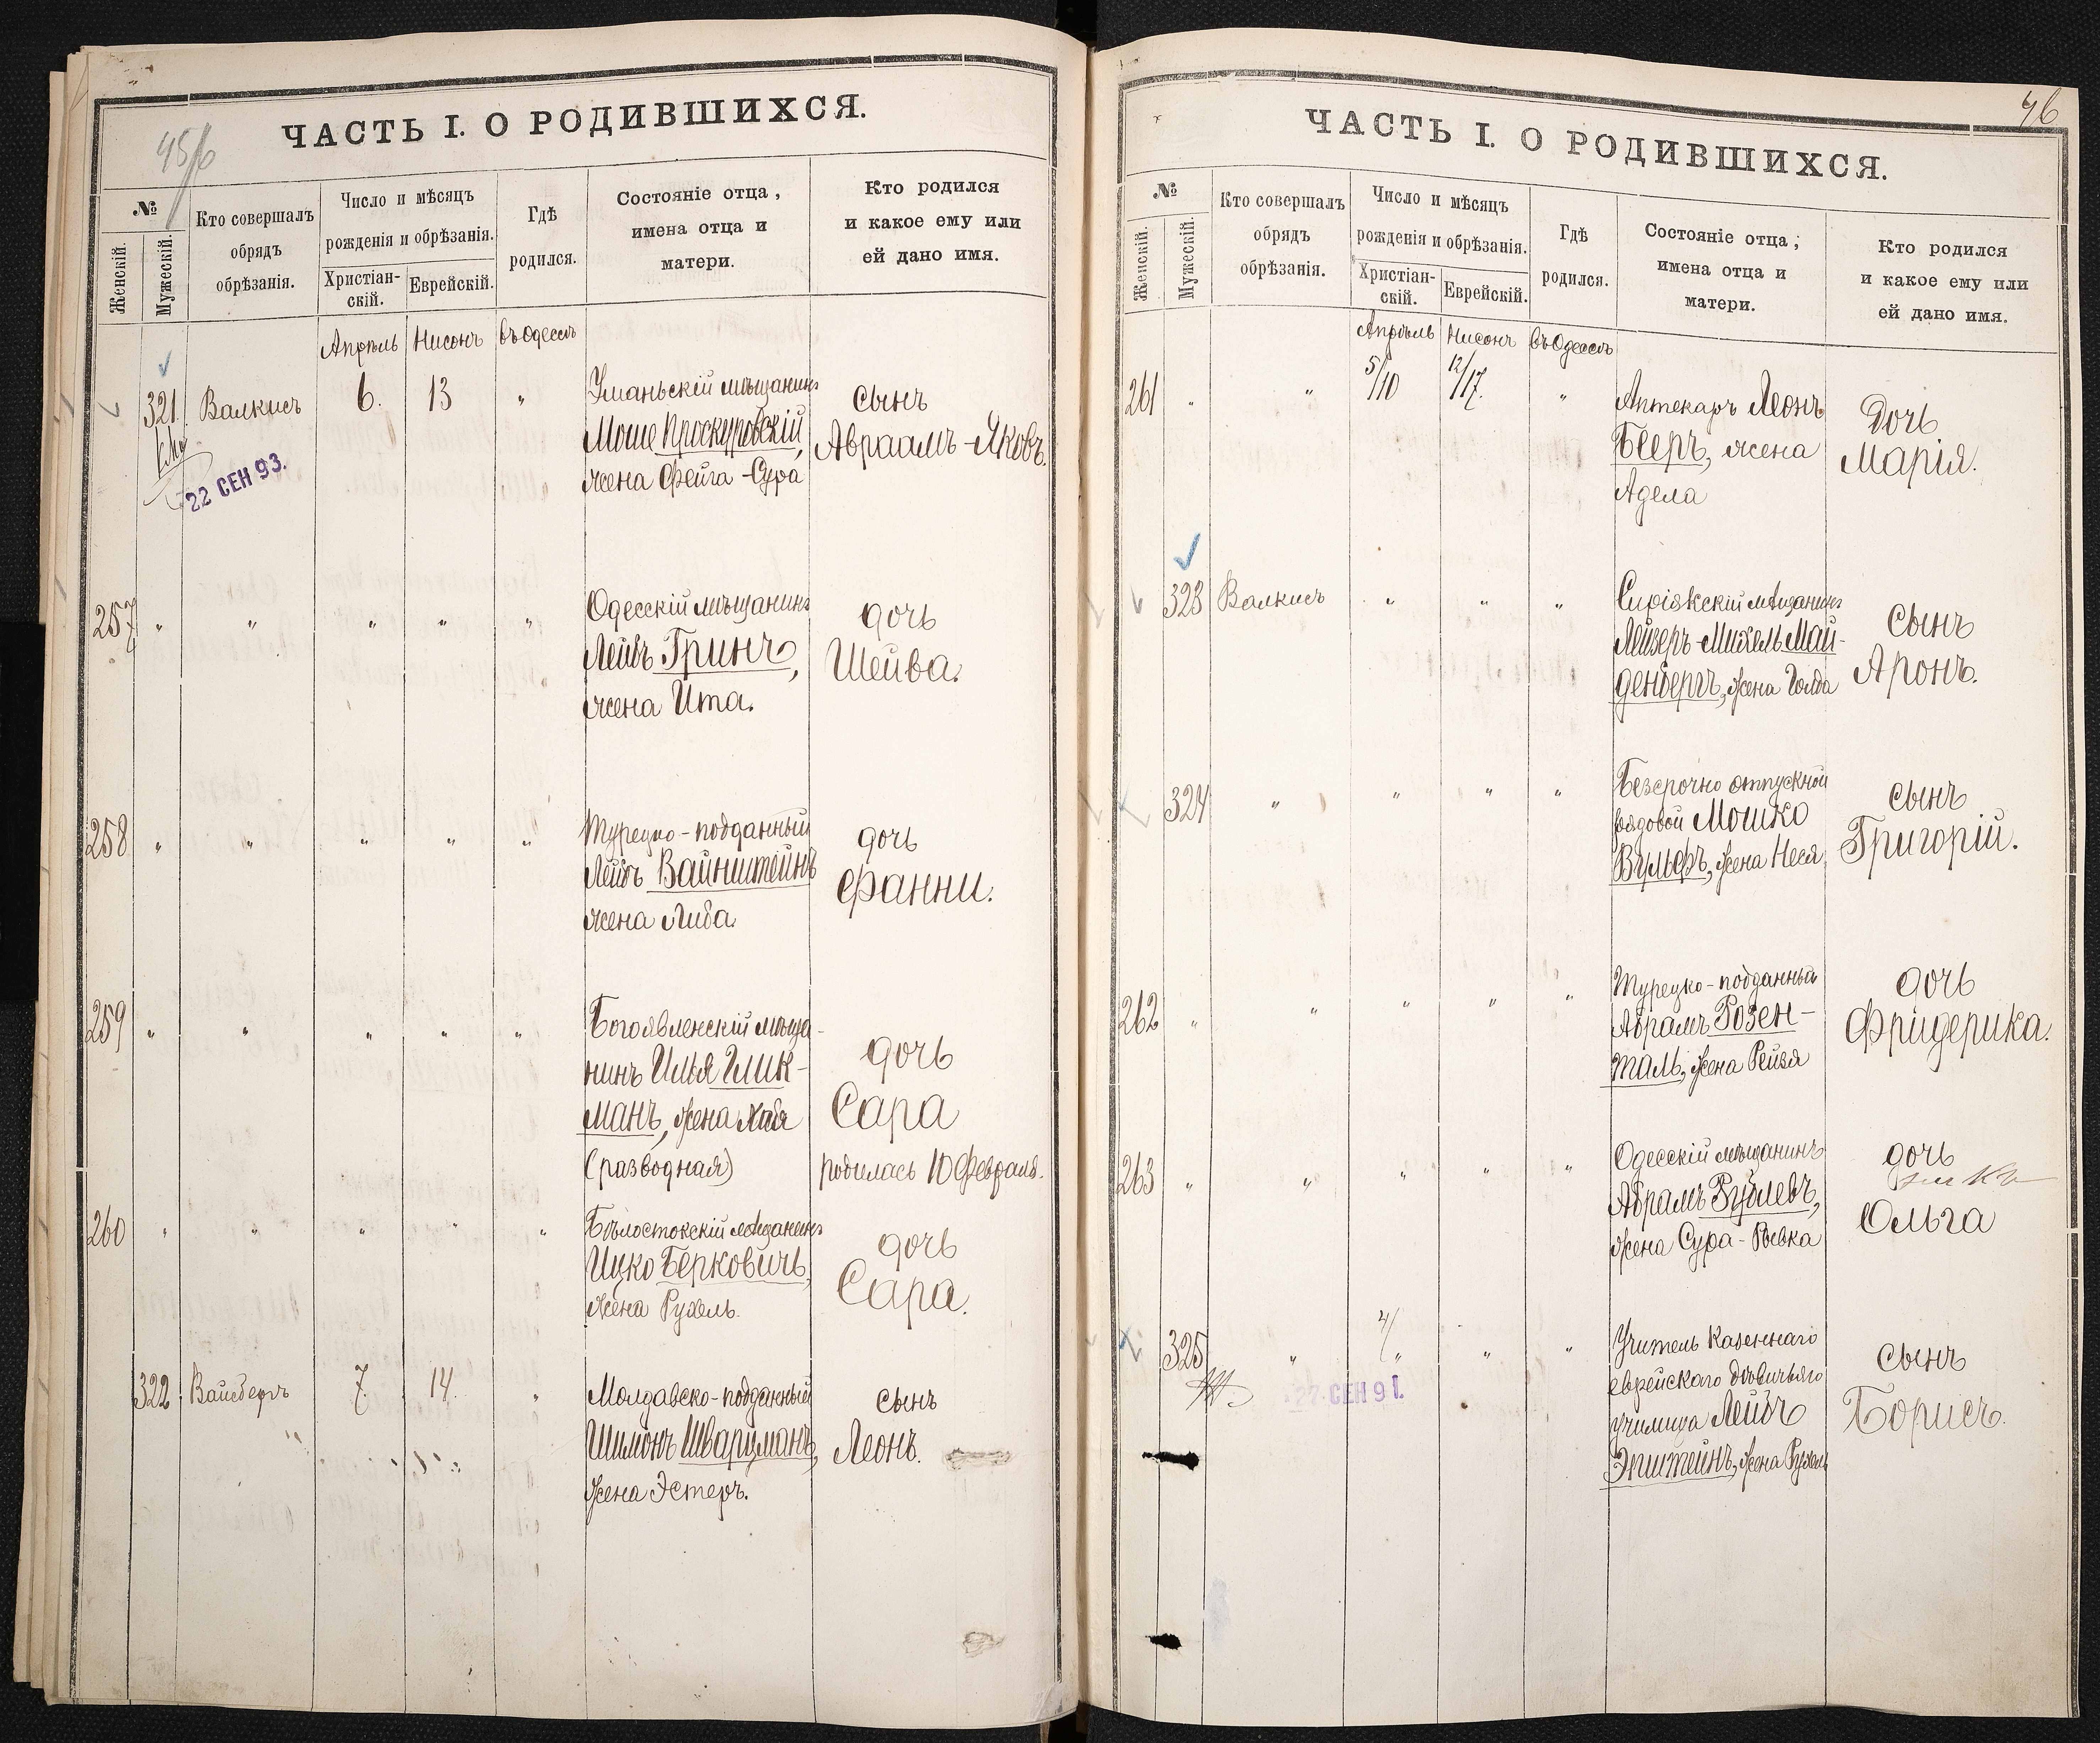 45/б
ЧАСТЬ I. О РОДИВШИХСЯ.
№
Женскій.
Мужескій.
Кто совершалъ
обрядъ
обрѣзанія.
Число и мѣсяцъ
рожденія и обрѣзанія.
Христіан-
скій.
Еврейскій.
Гдѣ
родился.
Состояніе отца,
имена отца и
матери.
Кто родился
и какое ему или
ей дано имя.
Апрѣль Нисонъ въ Одессѣ
321. Валкисъ 6. 13 „
Уманьскій мѣщанинъ
Моше Проскуровскій,
жена Фейга-Сура
сынъ
Авраамъ-Яковъ.
22 СЕН 93.
257 „ „ „ „ „
Одесскій мѣщанинъ
Лейбъ Гринъ,
жена Ита.
дочь
Шейва.
258 „ „ „ „ „
Турецко-подданный
Лейбъ Вайнштейнъ
жена Либа
дочь
Фанни.
259 „ „ „ „ „
Богоявленскій мѣща-
нинъ Илья Глик-
манъ, жена Хая
(разводная)
дочь
Сара
родилась 10 Февраля.
260 „ „ „ „ „
Бѣлостокскій мѣщанинъ
Ицко Берковичъ,
жена Рухель.
дочь
Сара.
322 Вайсбергъ 7 14 „
Молдавско-подданный
Шимонъ Шварцманъ,
жена Эстеръ.
сынъ
Леонъ.
46
ЧАСТЬ I. О РОДИВШИХСЯ.
№
Женскій.
Мужескій.
Кто совершалъ
обрядъ
обрѣзанія.
Число и мѣсяцъ
рожденія и обрѣзанія.
Христіан-
скій.
Еврейскій.
Гдѣ
родился.
Состояніе отца,
имена отца и
матери.
Кто родился
и какое ему или
ей дано имя.
Апрѣль Нисонъ въ Одессѣ
261 „ „ 5/10 12/17. „
Аптекаръ Леонъ
Бееръ, жена
Адела
Дочь
Марія.
323 Валкисъ „ „ „
мѣщанинъ
Лейзеръ-Михель Май-
денбергъ, жена Голда
Сынъ
Аронъ.
324 „ „ „ „
Безсрочно отпускной
рядовой Мошко
Вульфъ, жена Неся
сынъ
Григорій.
262 „ „ „ „ „
Турецко-подданный
Абрамъ Розен-
таль, жена Рейзя
дочь
Фридерика.
263 „ „ „ „ „
Одесскій мѣщанинъ
Абрамъ
жена Сура-Ривка
дочь
Ольга
325 „ 4/ „ „ „
Учитель Казеннаго
еврейскаго дѣвичьяго
училища Лейбъ
Эпштейнъ, жена Рухель
сынъ
Борисъ.
22 СЕН 91.